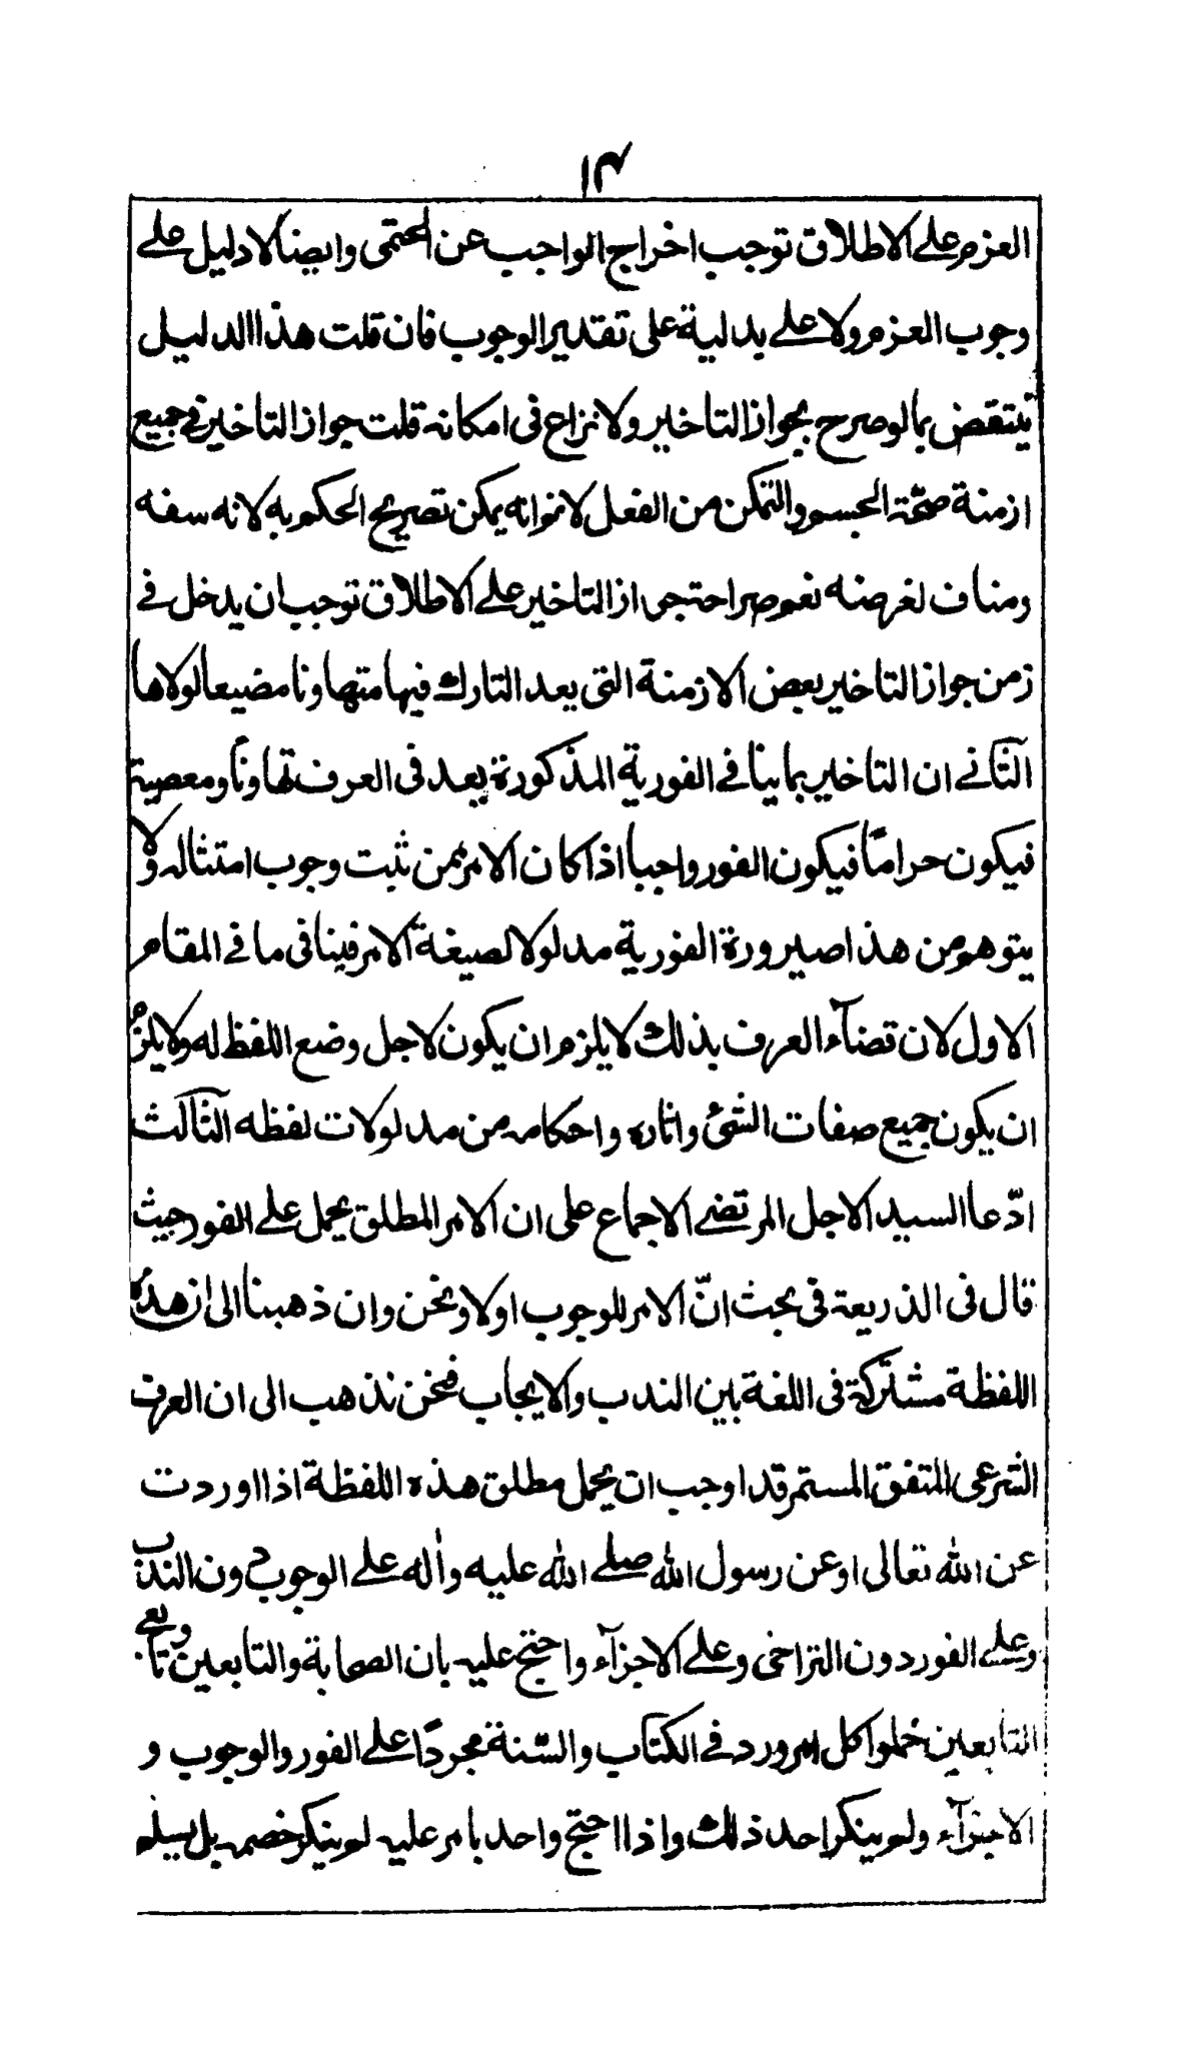 ١٣
العزم على الاطلاق توجب اخراج الواجب عن الحتمى وايضا لا دليل على
وجوب العزم ولا على بدلية على تقدير الوجوب فان قلت هذا الدليل
ينتقض بما لو صرح بجواز التاخير ولا نزاع فى امكانه قلت جواز التاخير فى جميع
ازمنة صحّة الجسم والتمكن من الفعل لا نم انه يمكن تصريح الحكم به لانه سفه
ومناف لغرضه نعم صراحة جواز التاخير على الاطلاق توجب ان يدخل فى
زمن جواز التاخير بعض الازمنة التى يعد التارك فيها متهاونا مضيعا لولاها
الثانى ان التاخير بما ينافى الفورية المذكورة يعد فى العرف تهاوناً ومعصية
فيكون حراماً فيكون الفور واجبا اذا كان الامر ممن ثبت وجوب امتثاله ولا
يتوهم من هذا صيرورة الفورية مدلولا لصيغة الامر فينافى ما فى المقام
الاول لان قضآء العرف بذلك لا يلزم ان يكون لاجل وضع اللفظ له ولا يلزم
ان يكون جميع صفات الشئ واثاره واحكامه من مدلولات لفظه الثالث
ادّعا السيد الاجل المرتضى الاجماع على ان الامر المطلق يحمل على الفور حيث
قال فى الذريعة فى بحث انّ الامر للوجوب اولا ونحن وان ذهبنا الى ان هذه
اللفظة مشتركة فى اللغة بين الندب والايجاب فنحن نذهب الى ان العرف
الشرعى المتفق المستمر قد اوجب ان يحمل مطلق هذه اللفظة اذا اوردت
عن الله تعالى او عن رسول الله صلى الله عليه واله على الوجوب دون الندب
وعلى الفور دون التراخى وعلى الاجزآء واحتج عليه بان الصحابة والتابعين وتابعى
التابعين حملوا كل امر ورد فى الكتاب والسّنة مجردًا على الفور والوجوب و
الاجزآء ولم ينكر احد ذلك واذا احتج واحد بامر عليه لم ينكر خصمه بل يسلم